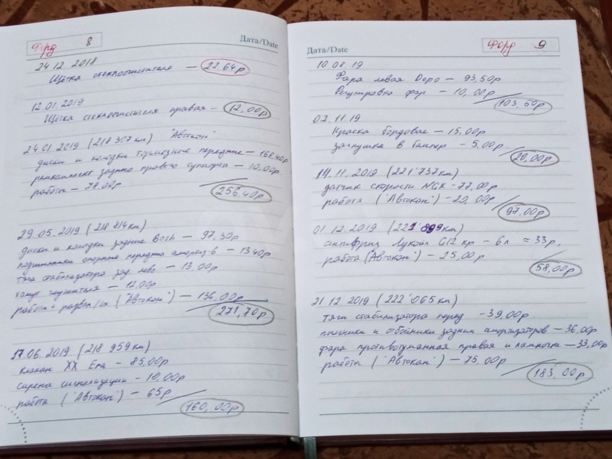 Форд 8
Дата/Date
24.12.2018
Щётка стеклоочистителя — 22.64р
12.01.2019
Щетка стеклоочистителя правая - 12,00р
24.01.2019 (218 307км) "Автокан"
диски и колодки тормозные передние - 166,40р
ремкомплект заднего правого суппорта - 12,00р
работа - 78.00р
256,40р
29.05.2019 (218 814км)
диски и колодки задние Bosh - 97,30р
подшипники опорные передних аморт-в - 13.40р
тяга стабилизатора зад. лев. - 13.00р
хомут глушителя - 12.00р
работа + развал/сх ("Автокан") - 136,00р
271,70р
17.06.2019 (218 959км)
клапан ХХ Era - 85,00р
сирена сигнализации - 10,00р
работа ("Автокан") - 65р
160,00р
Дата/Date
Форд 9
10.08.19
Фара левая Depo - 93,50р
Регулировка фар - 10,00р
103,50р
02.11.19
Краска бордовая - 15.00р
заглушка в бампер - 5,00р
20,00р
14.11.2019 (221 737км)
датчик скорости NGK - 77,00р
работа ("Автокан") - 20,00р
97.00р
01.12.2019 (221 899км)
антифриз Лукойл G12 кр - 6л = 33р,
работа (Автокан") - 25.00р
58,00р
21.12.2019 (222 065км)
тяги стабилизатора перед - 39,00р
пыльники и отбойники задних амортизаторов - 36,00р
фара противотуманная правая и лампочка - 33,00р
работа ("Автокан") - 75,00р
183,00р